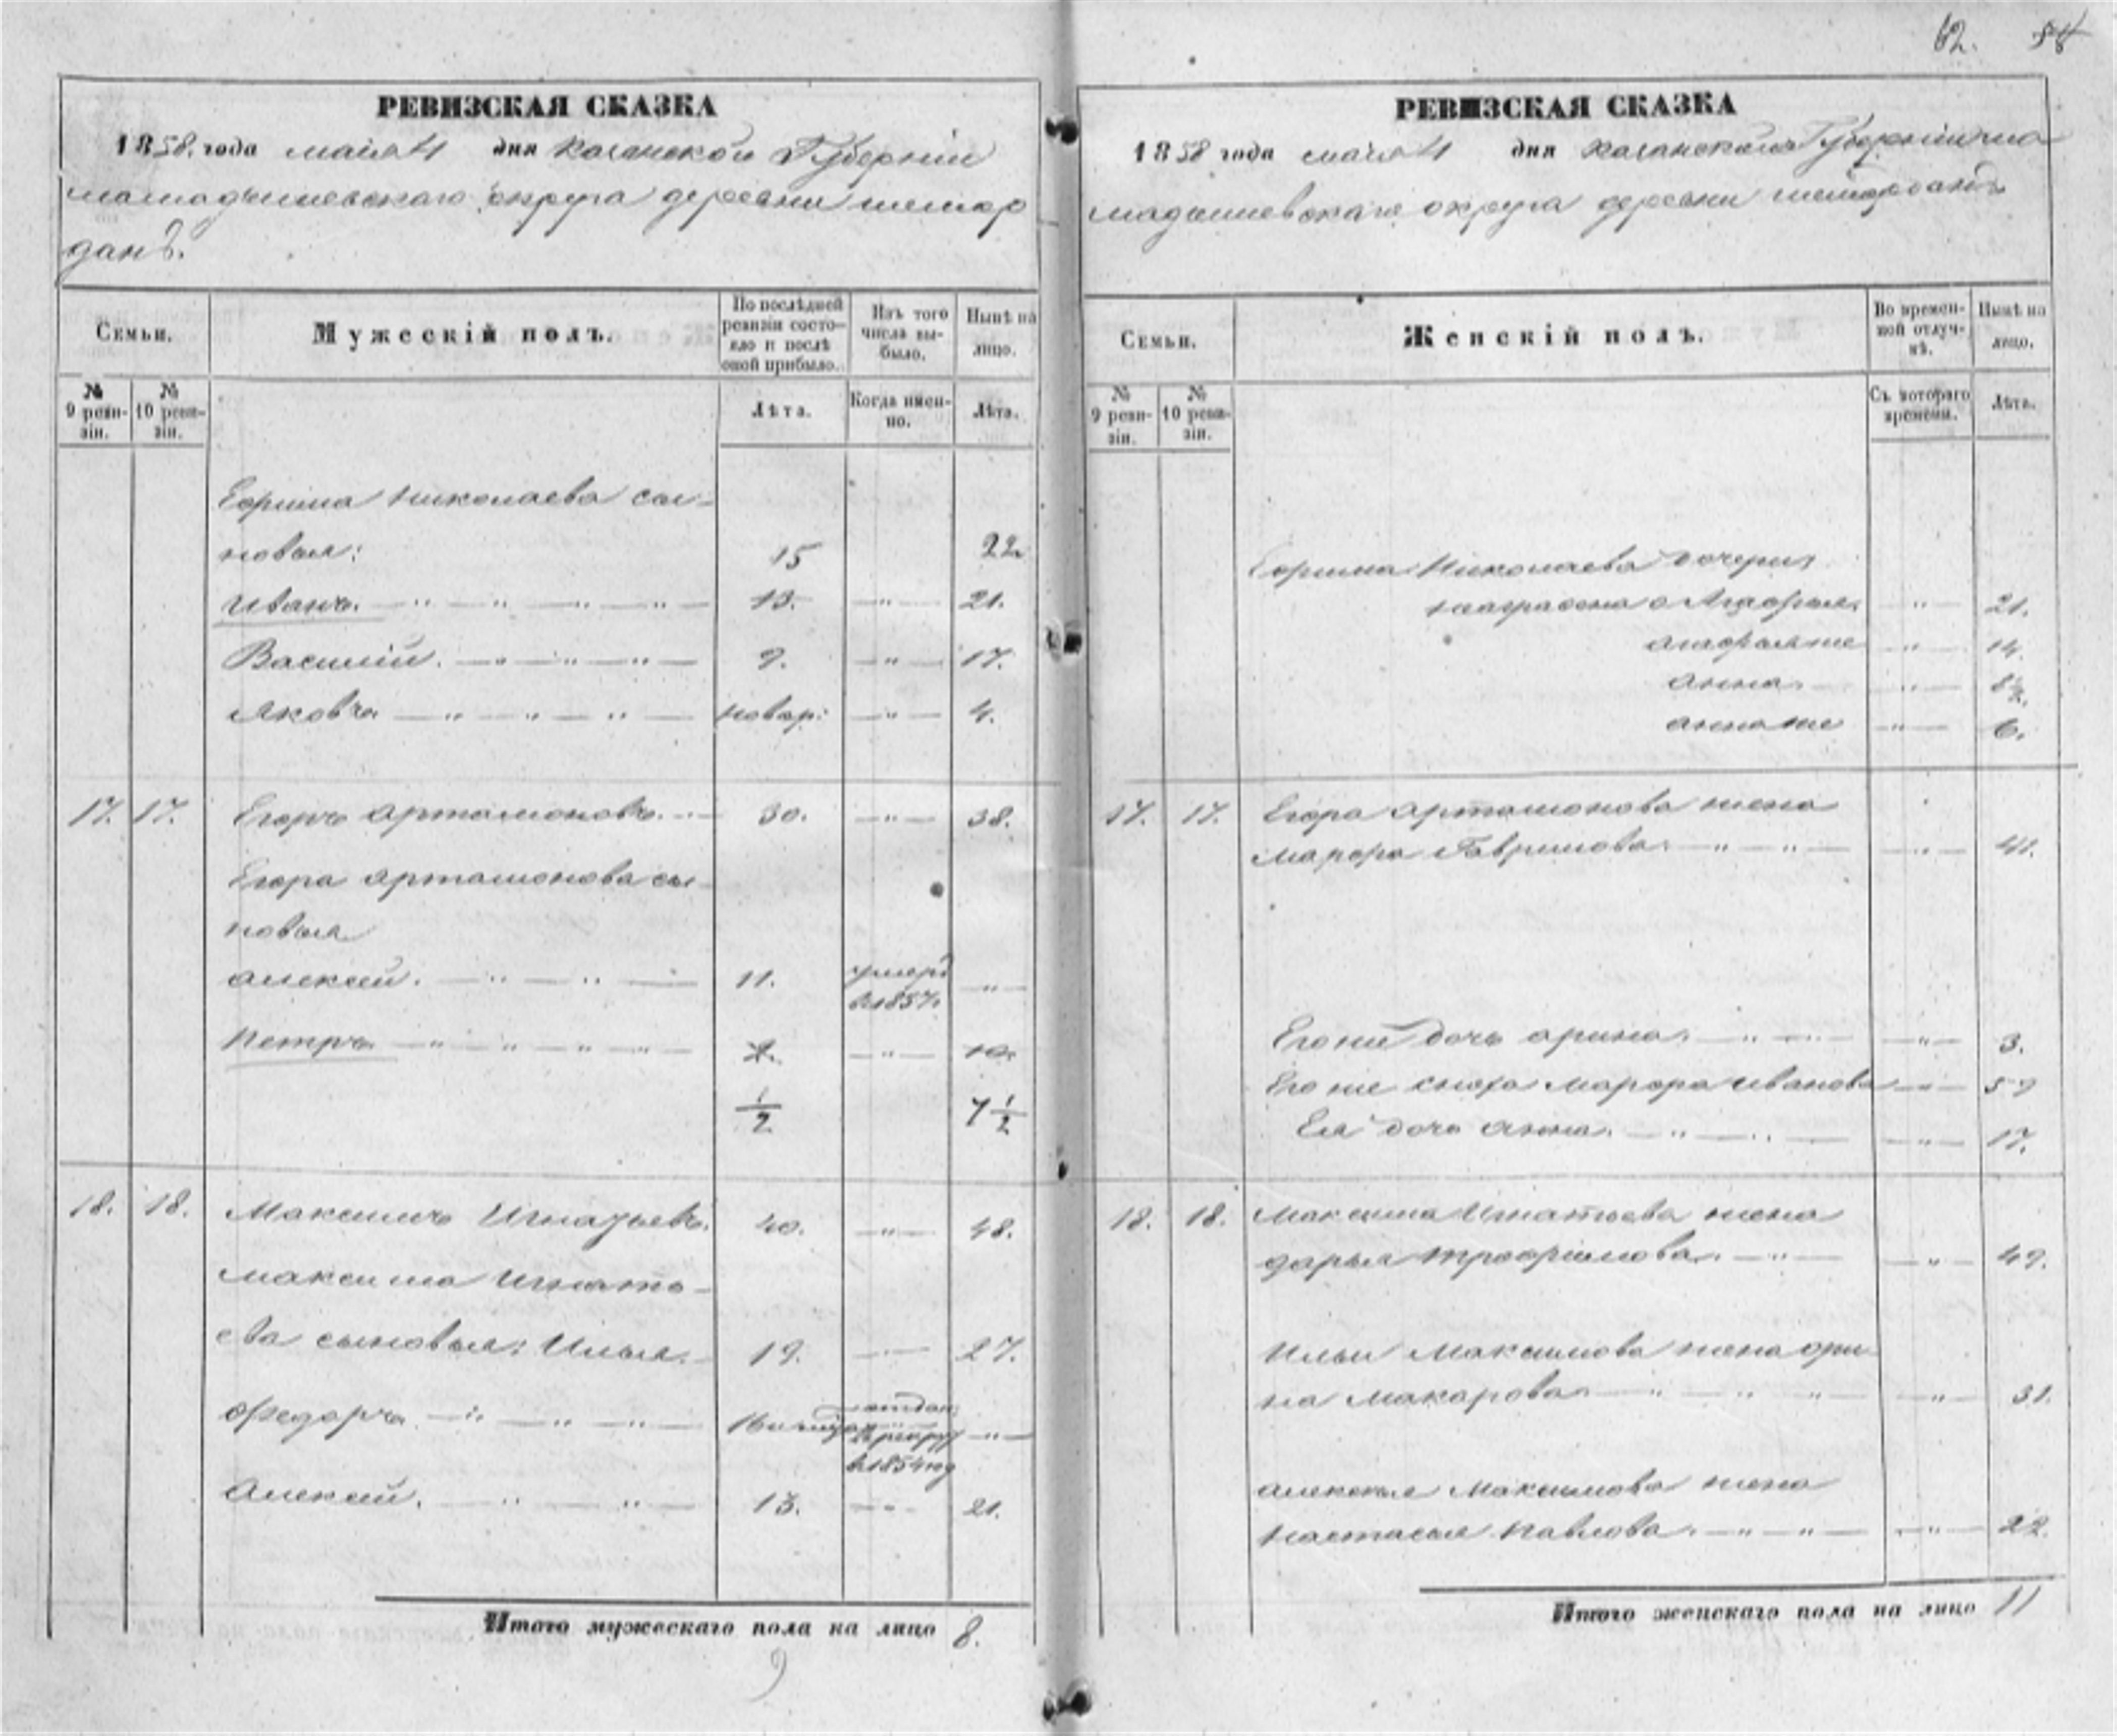 62. 54
РЕВИЗСКАЯ СКАЗКА
1858. года маія 4 дня Казанской Губерніи
мамадышевскаго округа деревни шемор
данъ.
Семьи.
Мужескій полъ.
По послѣдней ревизіи состо-
яло и послѣ
оной прибыло.
Изъ того
числа вы-
было.
Нынѣ на
лицо.
№
9 реви-
зіи.
№
10 реви-
зіи.
Лѣта.
Когда имен-
но.
Лѣта.
Ефима Николаева сы-
новья: 15 22
Иванъ. — " — " — " — " — 13. — " — 21.
Василій. — " — " — " — 9. — " — 17.
Яковъ — " — " — " — новор: — " — 4.
17. 17. Егоръ Артамоновъ. — 30. — " — 38.
Егора Артамонова сы-
новья
Алексей. — " — " — 11. умеръ
в 1857. — " —
Петръ — " — " — " — " — — " —
1/2 7 1/2
18. 18. Максимъ Игнатьевъ. 40. — " — 48.
Максима Игнать-
ева сыновья: Илья. 19. — " — 27.
Федоръ — " — " — " — 16 отдан
в рекру — " —
в 1854 год
Алексей. — " — " — 13. — " — 21.
Итого мужескаго пола на лицо 8.
9
РЕВИЗСКАЯ СКАЗКА
1858 года маія 4 дня Казанской Губерніи ма
мадышевскаго округа деревни шемордан
Семьи.
Женскій полъ.
Во времен-
ной отлуч-
кѣ.
Нынѣ на
лицо.
№
9 реви-
зіи.
№
10 реви-
зіи.
Съ котораго
времени.
Лѣта.
Ефима Николаева дочери
— " — 21.
Агафья же — " — 14.
Анна. — " — 8½.
Анна же — " — 6.
17. 17. Егора Артамонова жена
Марфа Гаврилова. — " — " — — " — 41.
Его же дочь Арина. — " — — " — 3.
Его же сноха Марфа Иванова — " — 59
Ея дочь Анна. — " — " — — " — 17.
18. 18. Максима Игнатьева жена
Дарья Трофимова. — " — — " — 49.
Ильи Максимова жена Ори-
на Макарова — " — " — " — — " — 31.
Алексея Максимова жена
Настасья Павлова. — " — " — — " — 22.
Итого женскаго пола на лицо 11